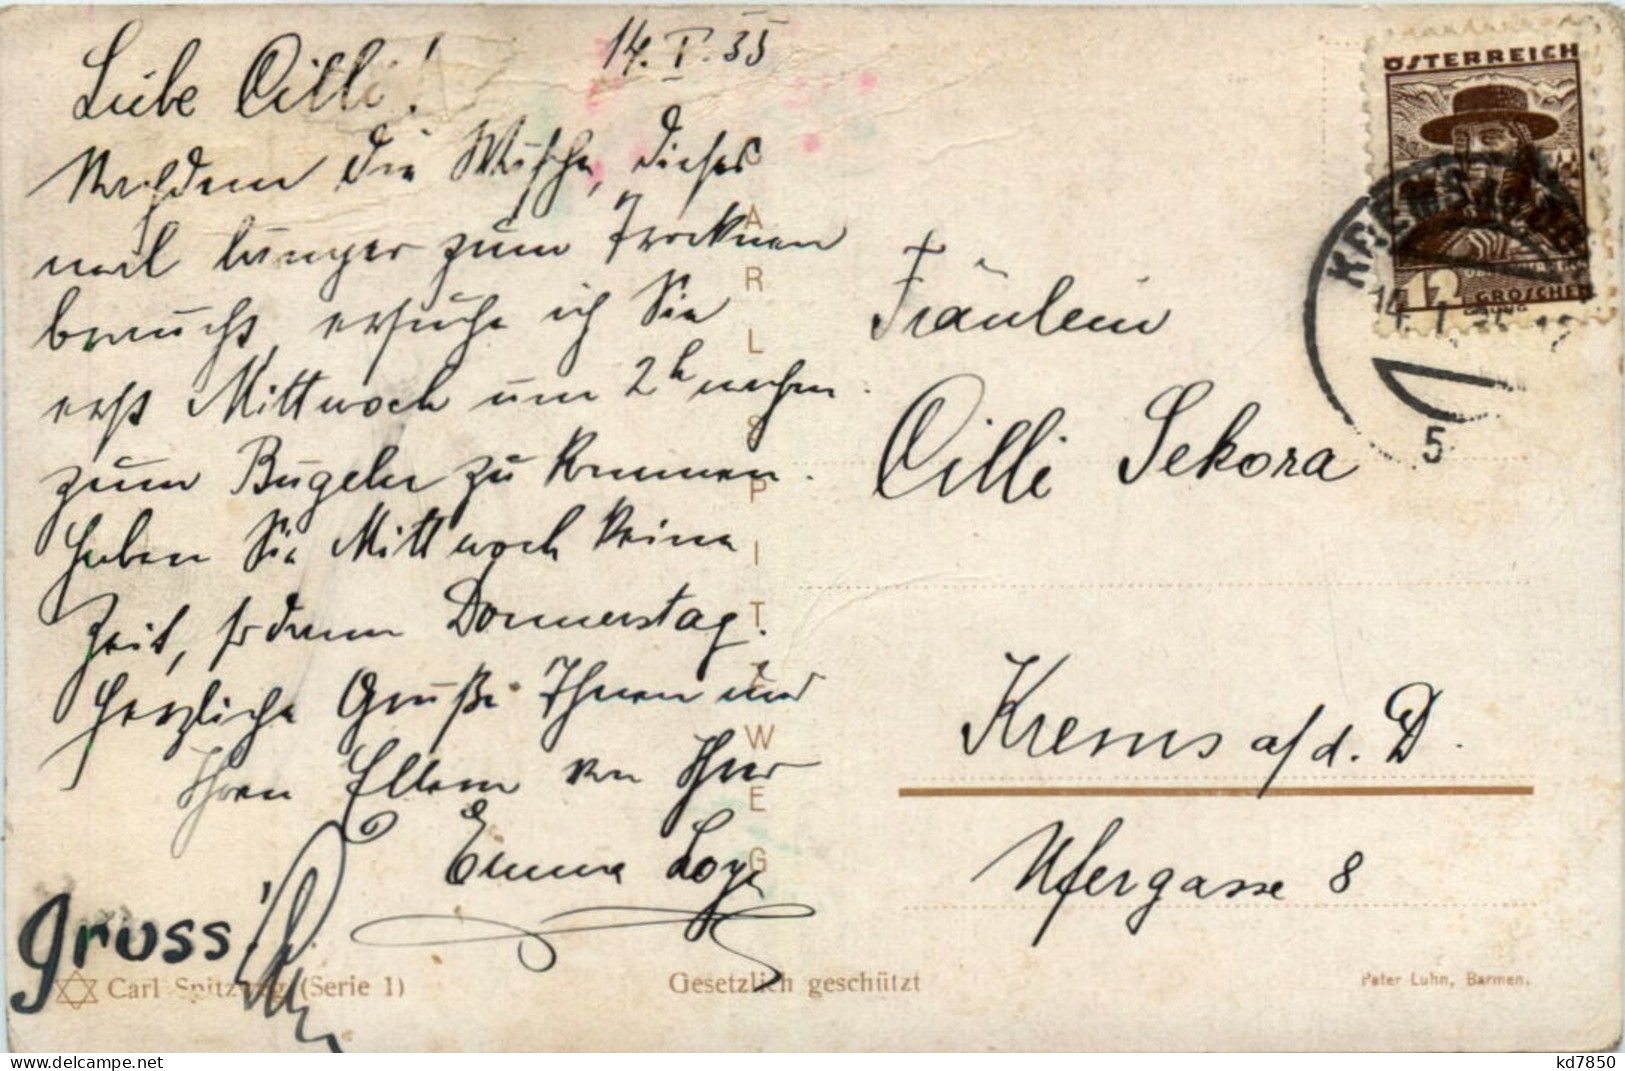 14. I. 35
Liebe Cilli!
Nachdem die Wäsche, dieses
mal länger zum Trocknen
braucht, ersuche ich Sie
erst Mittwoch um 2h nachm.
zum Bügeln zu kommen.
Haben Sie Mittwoch keine
Zeit, so dann Donnerstag.
Herzliche Grüße Ihnen und
Ihren Eltern von Ihrer
Emma
Gruss
Carl Spitzweg (Serie 1)
Gesetzlich geschützt
Peter Luhn, Barmen.
CARL SPITZWEG
ÖSTERREICH
12
GROSCHEN
KREMS
14. I.
5
Fräulein
Cilli Sekora
Krems a/d. D.
Ufergasse 8
https://www.delcampe.net
kd7850